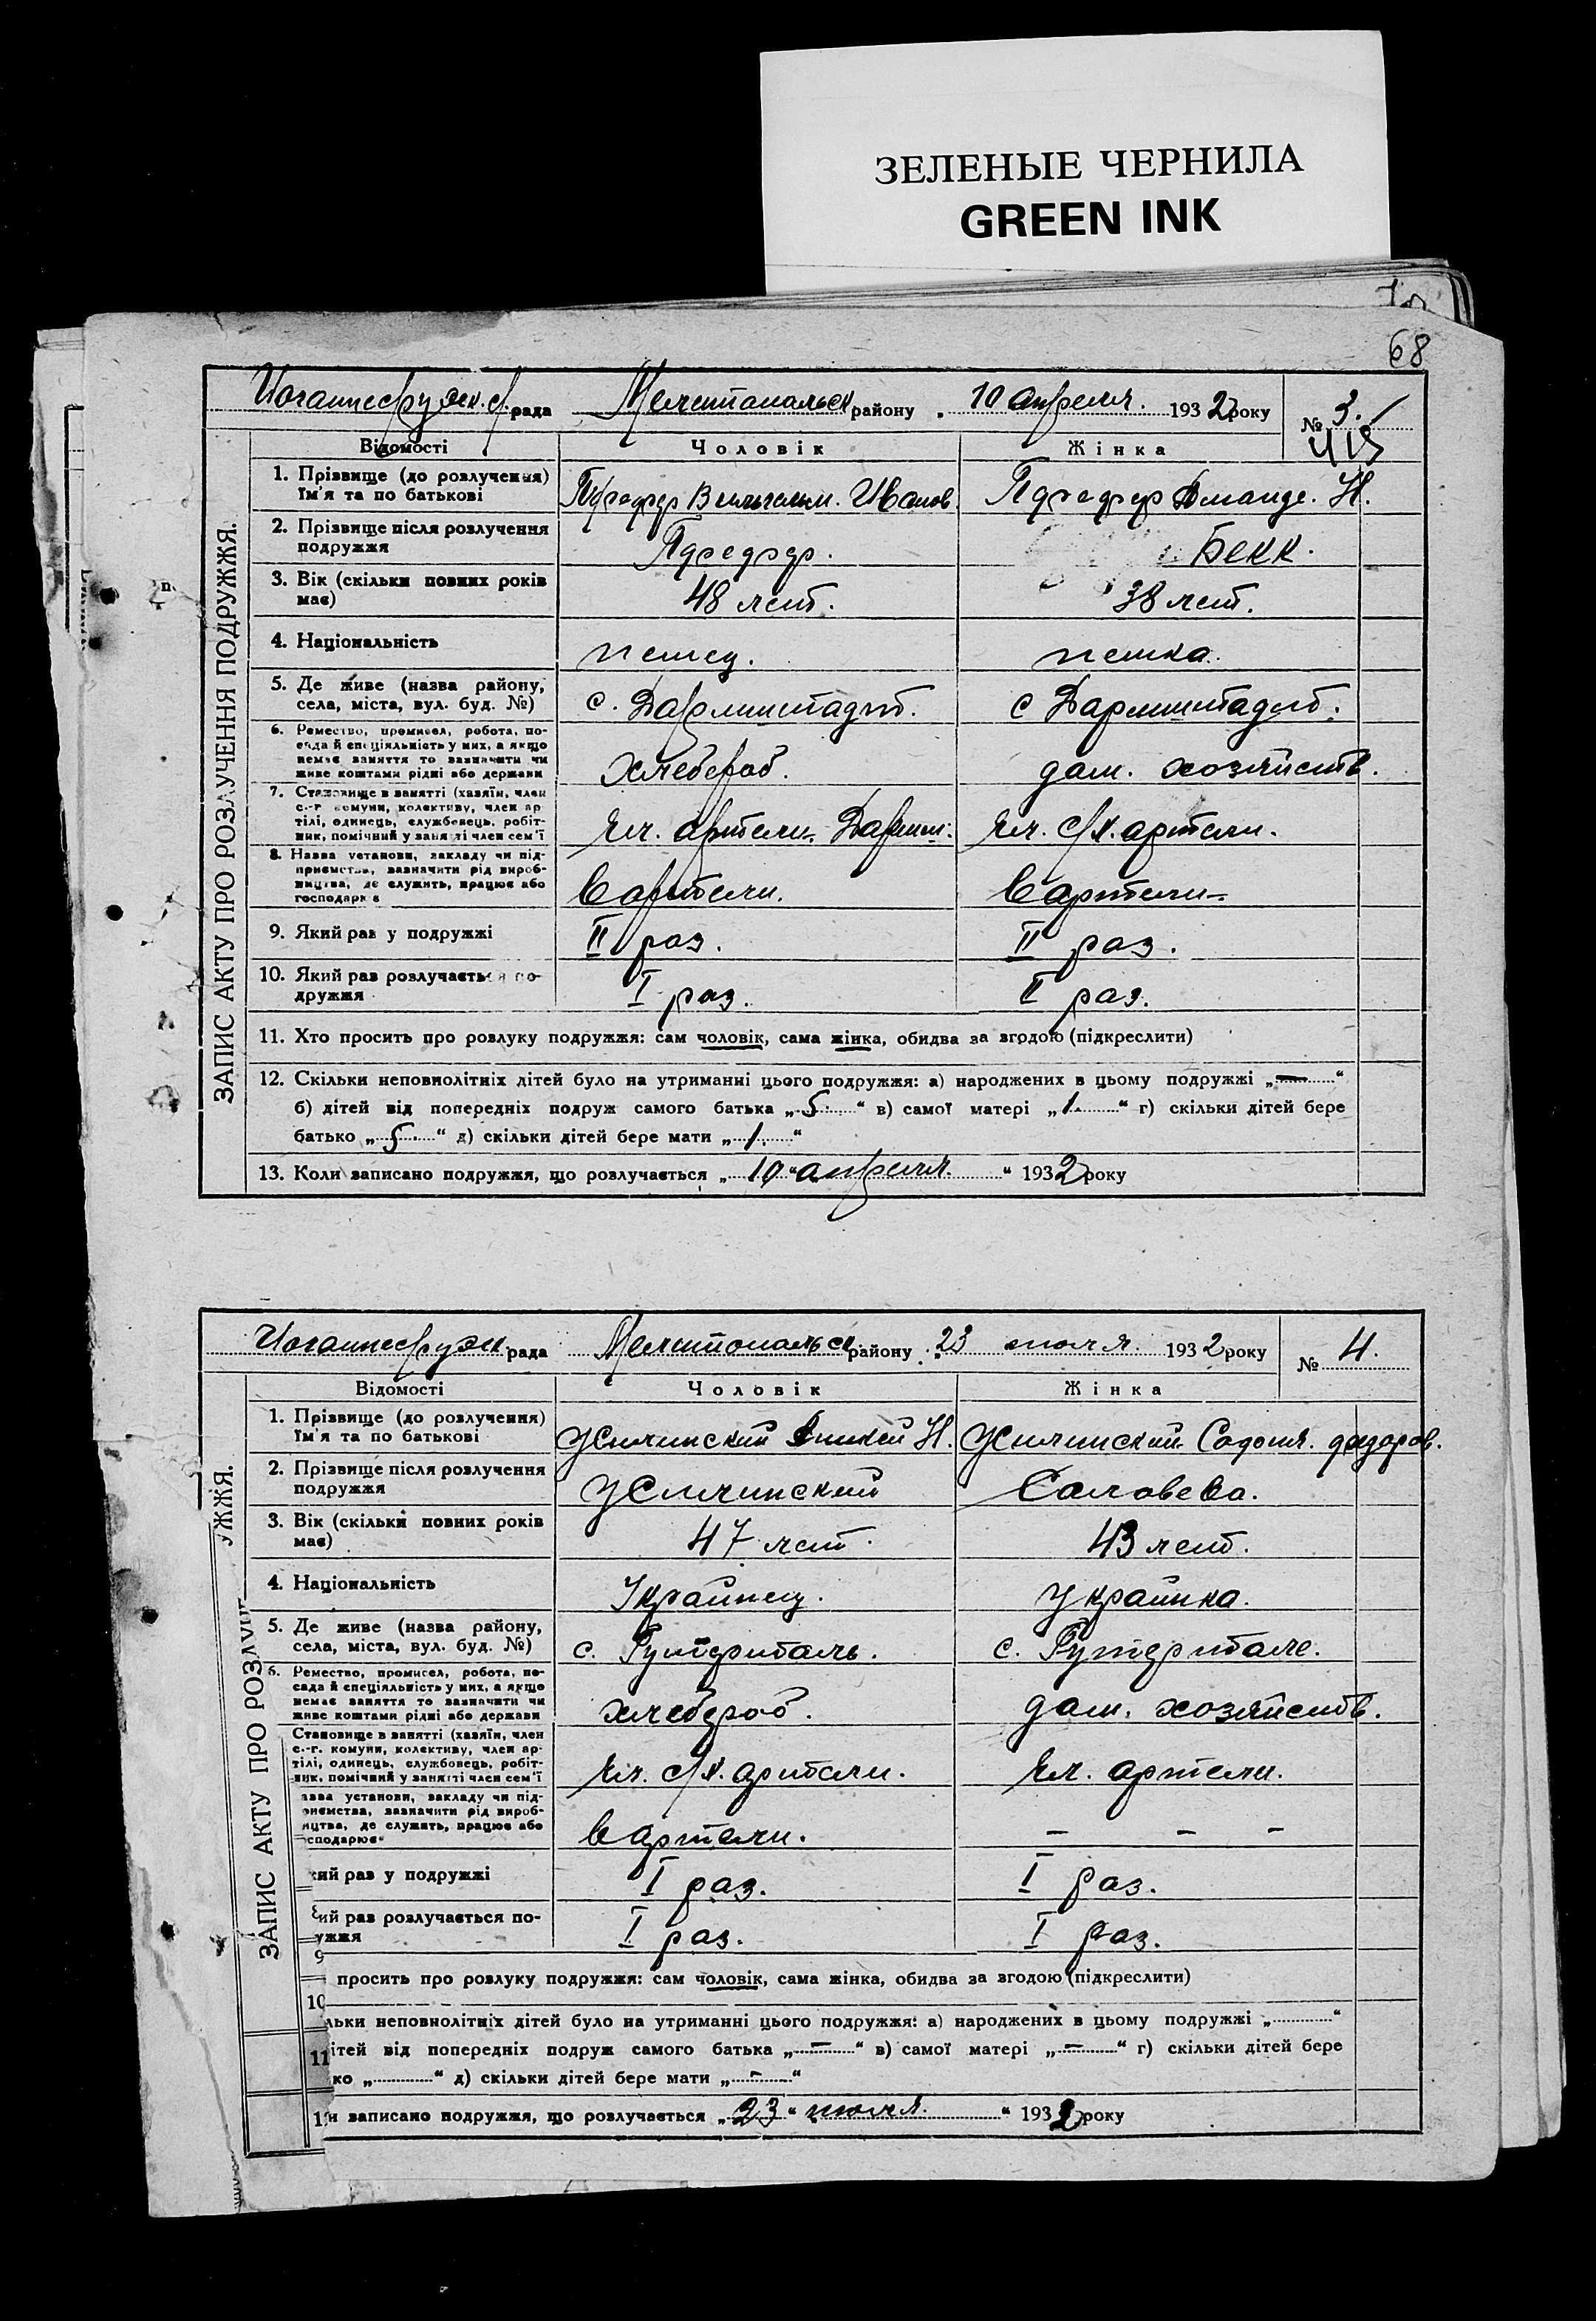 ЗЕЛЕНЫЕ ЧЕРНИЛА
GREEN INK
68
Иоганнесруэск. с/рада Мелитопольск району 10 апреля. 1932 року № 3.
415
ЗАПИС АКТУ ПРО РОЗЛУЧЕННЯ ПОДРУЖЖЯ.
Відомості Чоловік Жінка
1. Прізвище (до розлучення) Ім'я та по батькові Пфефер Вильгельм. Иванов. Пфефер Аманде. И.
2. Прізвище після розлучення подружжя Пфефер. Бекк.
3. Вік (скільки повних років має) 48 лет. 38 лет.
4. Національність немец. немка.
5. Де живе (назва району, села, міста, вул. буд. №) с. Дармштадт. с Дармштадт.
6. Ремество, промисел, робота, посада й спеціяльність у них, а якщо немає заняття то зазначити чи живе коштами рідні або держави хлебороб. дом. хозяйств.
7. Становище в занятті (хазяїн, член с.-г. комуни, колективу, член артілі, одинець, службовець, робітник, помічний у занятті член сем'ї чл. артели Дармш. чл. с/х. артели.
8. Назва установи, закладу чи підприємства, зазначити рід виробництва, де служить, працює або господарює в артели. в артели
9. Який раз у подружжі II раз. II раз.
10. Який раз розлучається подружжя I раз. II раз.
11. Хто просить про розлуку подружжя: сам чоловік, сама жінка, обидва за згодою (підкреслити)
12. Скільки неповнолітніх дітей було на утриманні цього подружжя: а) народжених в цьому подружжі „—“
б) дітей від попередніх подруж самого батька „5“ в) самої матері „1.“ г) скільки дітей бере
батько „5“ д) скільки дітей бере мати „1.“
13. Коли записано подружжя, що розлучається „10“ апреля. “ 1932 року
Иоганнесруэск рада Мелитопольск. району 23 июля. 1932 року № 4.
УЖЖЯ.
ЗАПИС АКТУ ПРО РОЗЛУЧ
Відомості Чоловік Жінка
1. Прізвище (до розлучення) Ім'я та по батькові Жилинский И. Жилинский София. Федоров.
2. Прізвище після розлучення подружжя Жилинский Соловева.
3. Вік (скільки повних років має) 47 лет. 43 лет.
4. Національність Украинец. Украинка.
5. Де живе (назва району, села, міста, вул. буд. №) с. Гутерталь. с. Гутертале.
6. Ремество, промисел, робота, посада й спеціяльність у них, а якщо немає заняття то зазначити чи живе коштами рідні або держави хлебороб. дом. хозяйств.
Становище в занятті (хазяїн, член с.-г. комуни, колективу, член артілі, одинець, службовець, робітник, помічний у занятті член сем'ї чл. с/х. артели. чл. артели.
азва установи, закладу чи підприємства, зазначити рід виробництва, де служить, працює або господарює в артели. - - -
кий раз у подружжі I раз. I раз.
кий раз розлучається подружжя I раз. I раз.
9
просить про розлуку подружжя: сам чоловік, сама жінка, обидва за згодою (підкреслити)
10
льки неповнолітніх дітей було на утриманні цього подружжя: а) народжених в цьому подружжі „“
11
ітей від попередніх подруж самого батька „—“ в) самої матері „—“ г) скільки дітей бере
ко „“ д) скільки дітей бере мати „-“
и записано подружжя, що розлучається „23“ июля. “ 1932 року